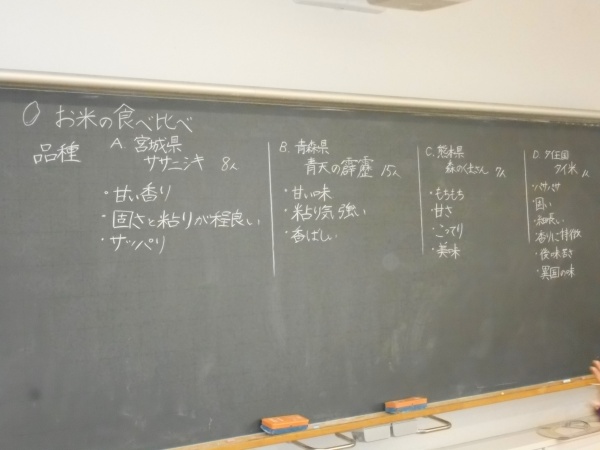 ○ お米の食べ比べ
品種
A. 宮城県
ササニシキ 8人
・甘い香り
・固さと粘りが程良い
・サッパリ
B. 青森県
青天の霹靂 15人
・甘い味
・粘り気強い
・香ばしい
C. 熊本県
森のくまさん 7人
・もちもち
・甘さ
・こってり
・美味
D. タイ王国
タイ米 1人
・パサパサ
・固い
・細長い
・香りに特徴
・後味
・異国の味